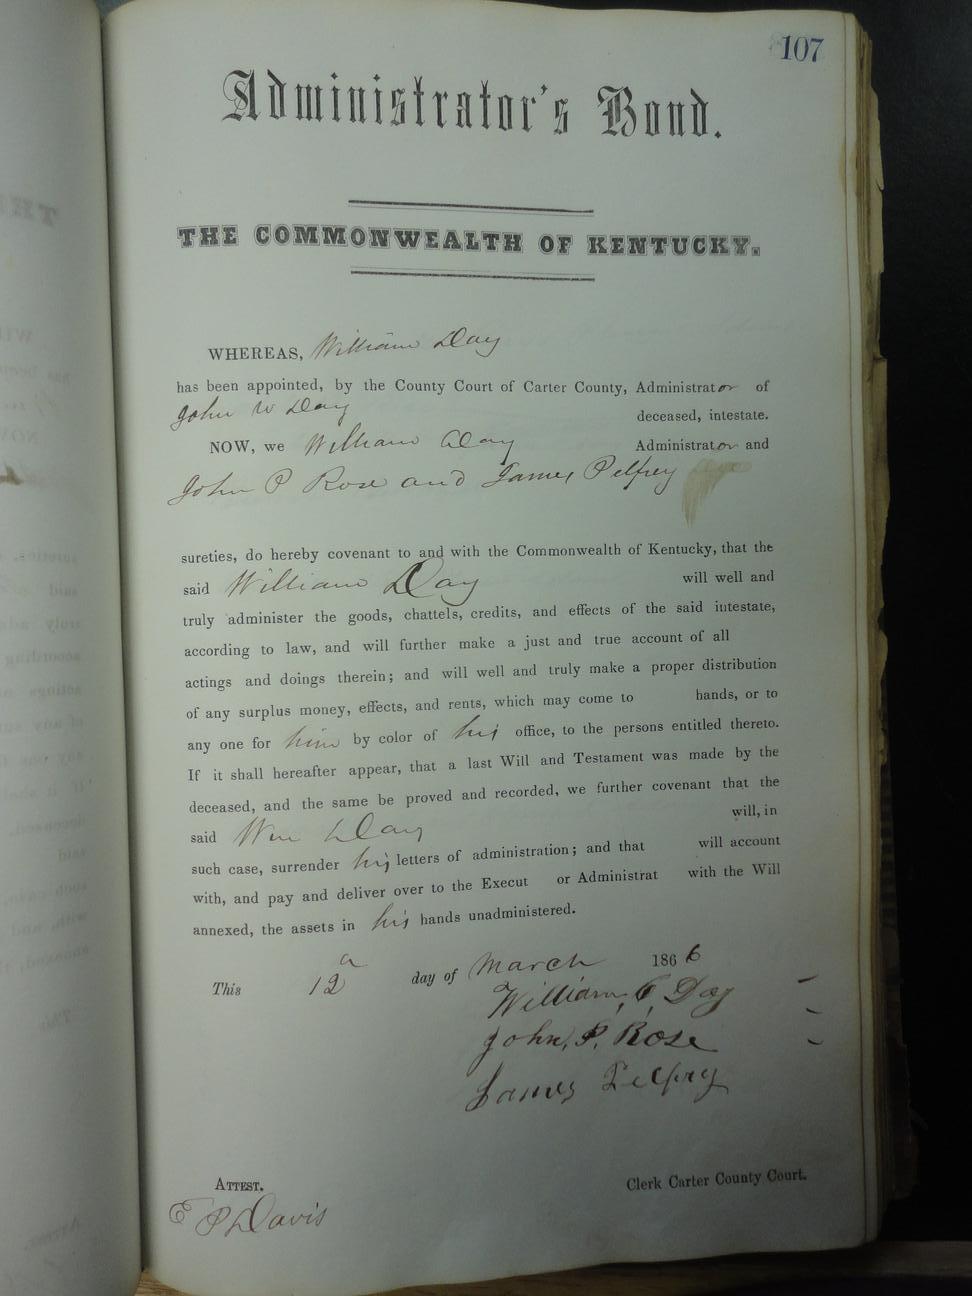 107
Administrator's Bond.
THE COMMONWEALTH OF KENTUCKY.
WHEREAS, William Day
has been appointed, by the County Court of Carter County, Administrator of
John W Day deceased, intestate.
NOW, we William Day Administrator and
John P Rose and James Pelfrey
sureties, do hereby covenant to and with the Commonwealth of Kentucky, that the
said William Day will well and
truly administer the goods, chattels, credits, and effects of the said intestate,
according to law, and will further make a just and true account of all
actings and doings therein; and will well and truly make a proper distribution
of any surplus money, effects, and rents, which may come to hands, or to
any one for him by color of his office, to the persons entitled thereto.
If it shall hereafter appear, that a last Will and Testament was made by the
deceased, and the same be proved and recorded, we further covenant that the
said Wm Day will, in
such case, surrender his letters of administration; and that will account
with, and pay and deliver over to the Execut or Administrat with the Will
annexed, the assets in his hands unadministered.
This 12 day of March 1866
William, C, Day
John, P, Rose
James Pelfry
ATTEST.
Clerk Carter County Court.
E P Davis